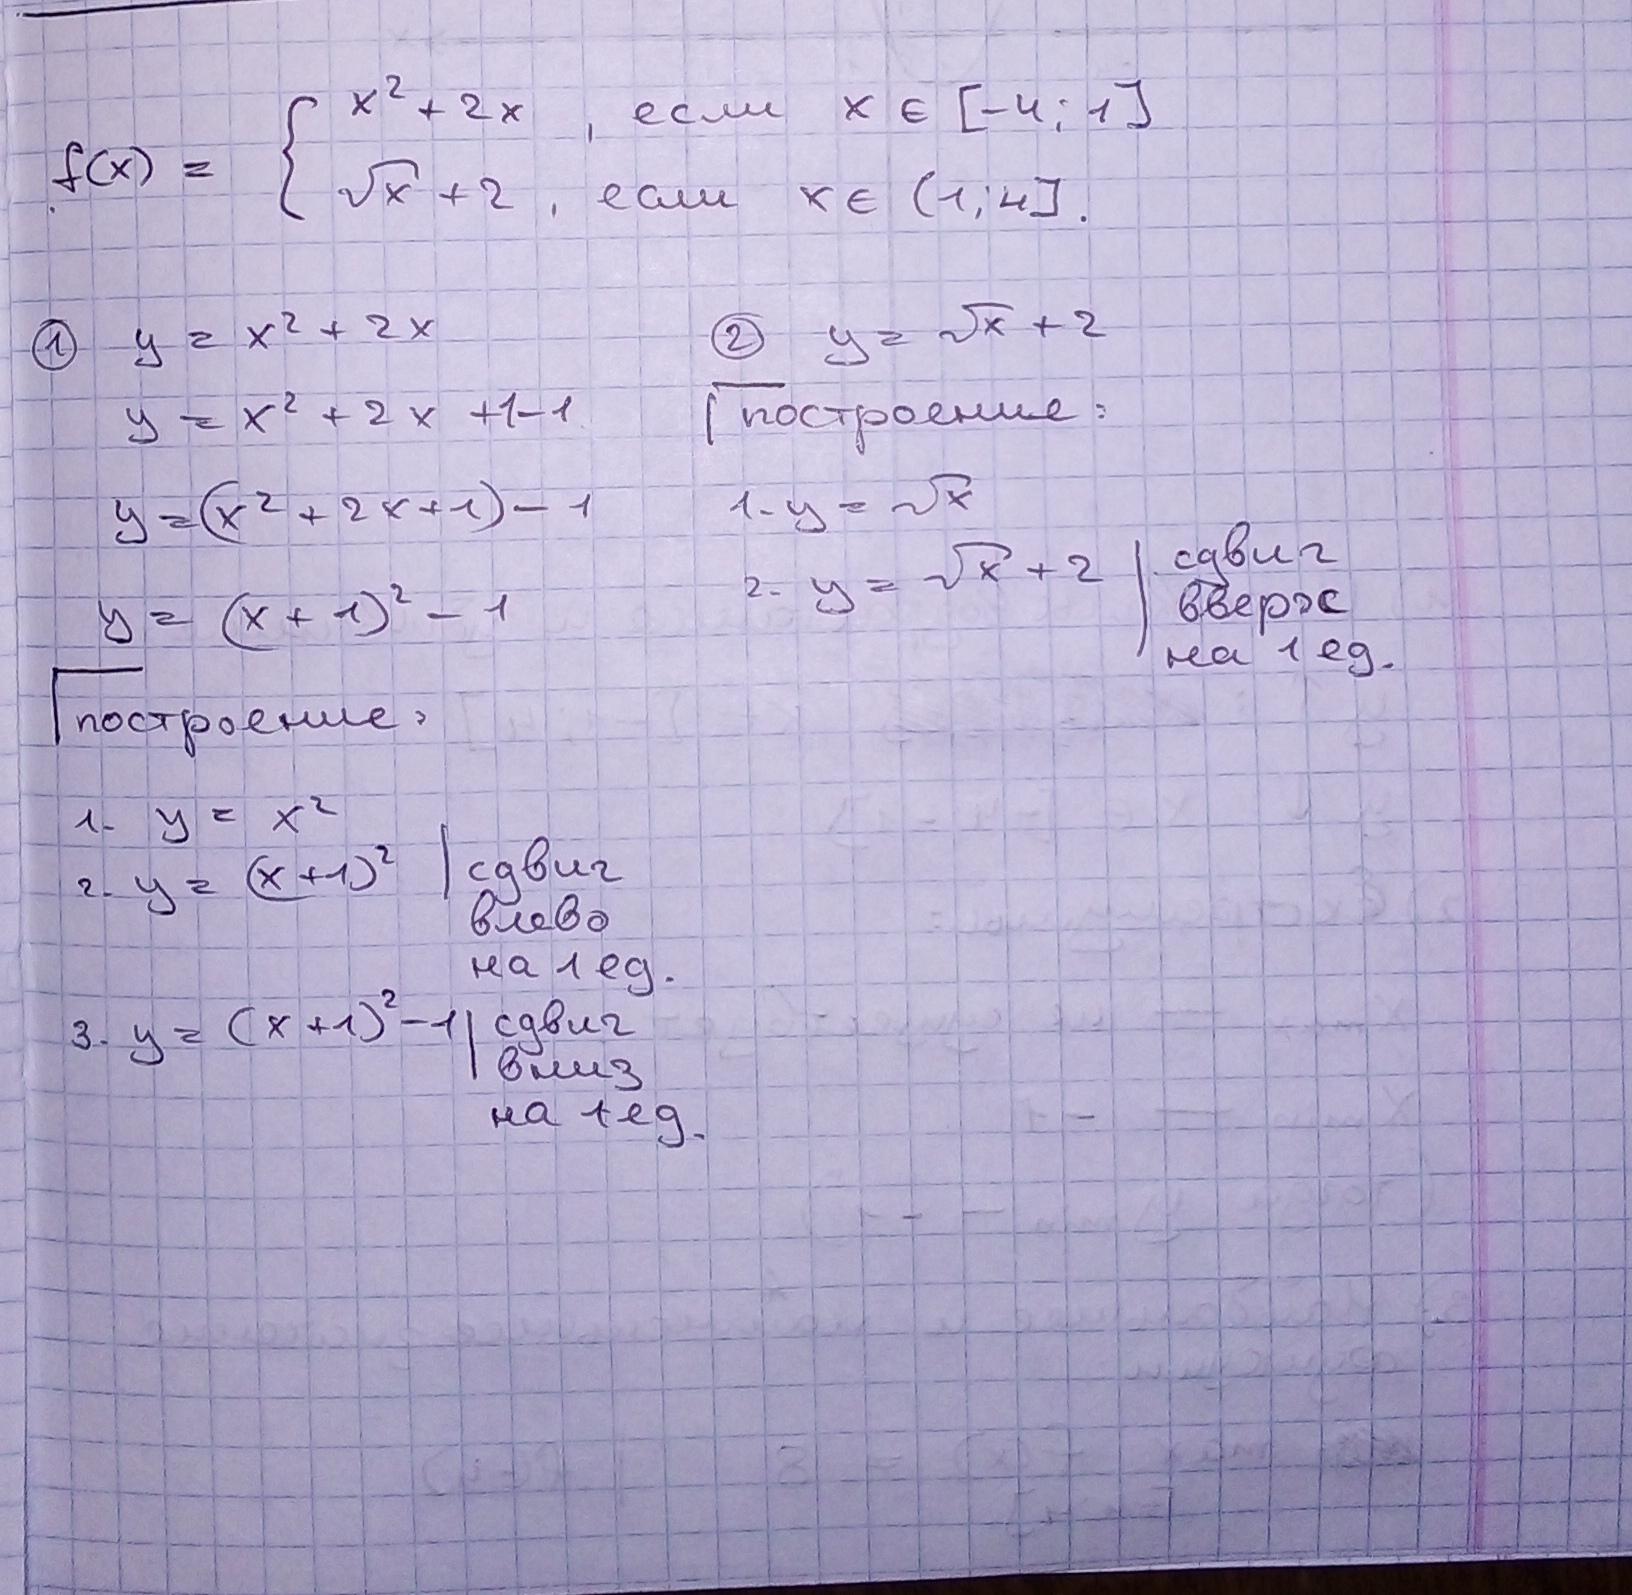 f(x) = { x² + 2x , если x ∈ [-4; 1]
√x + 2 , если x ∈ (1; 4].
① y = x² + 2x
y = x² + 2x + 1 - 1
y = (x² + 2x + 1) - 1
y = (x + 1)² - 1
построение:
1. y = x²
2. y = (x+1)² | сдвиг
влево
на 1 ед.
3. y = (x+1)² - 1 | сдвиг
вниз
на 1 ед.
② y = √x + 2
построение:
1. y = √x
2. y = √x + 2 | сдвиг
вверх
на 1 ед.